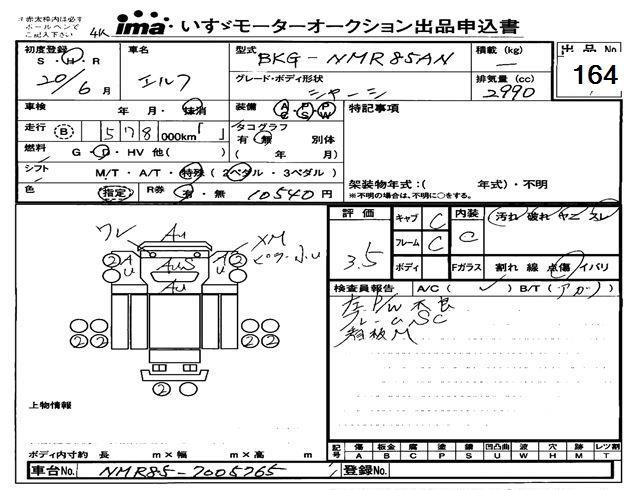 ※赤太枠内は必ず
ボールペンで
ご記入下さい
4K
ima いすゞモーターオークション出品申込書
初度登録 S・H・R 20/6月
車名 エルフ
型式 BKG-NMR85AN
積載(kg) —
出品No 164
グレード・ボディ形状 シャーシ
排気量(cc) 2990
車検 年 月・抹消
装備 AC・PS・PW
特記事項
走行 B 578 000km
タコグラフ 有・無 別体
( 年 月)
燃料 G・D・HV 他( )
シフト M/T・A/T・特殊(2ペダル・3ペダル)
架装物年式:( 年式)・不明
※不明の場合は、不明に○をする。
色 (指定) R券 有・無 10540円
評価 3.5
キャブ C
内装 C
汚れ 破れ ヤニ スレ
フレーム C
ボディ
Fガラス 割れ 線 点傷 イバリ
検査員報告 A/C( ✓ ) B/T(アカ)
左P/W不良
フレームSC
荷板M
ワレ
AU
XM
ピラー小U
2 AU
AUS
AU
2
2 2
2 2
2
上物情報
ボディ内寸約 長 m×幅 m×高 m
記号 傷A 板金B 腐C 塗P 錆S 凹凸曲U 波W 穴H 跡M レツ割T
車台No. NMR85-7005765
登録No.